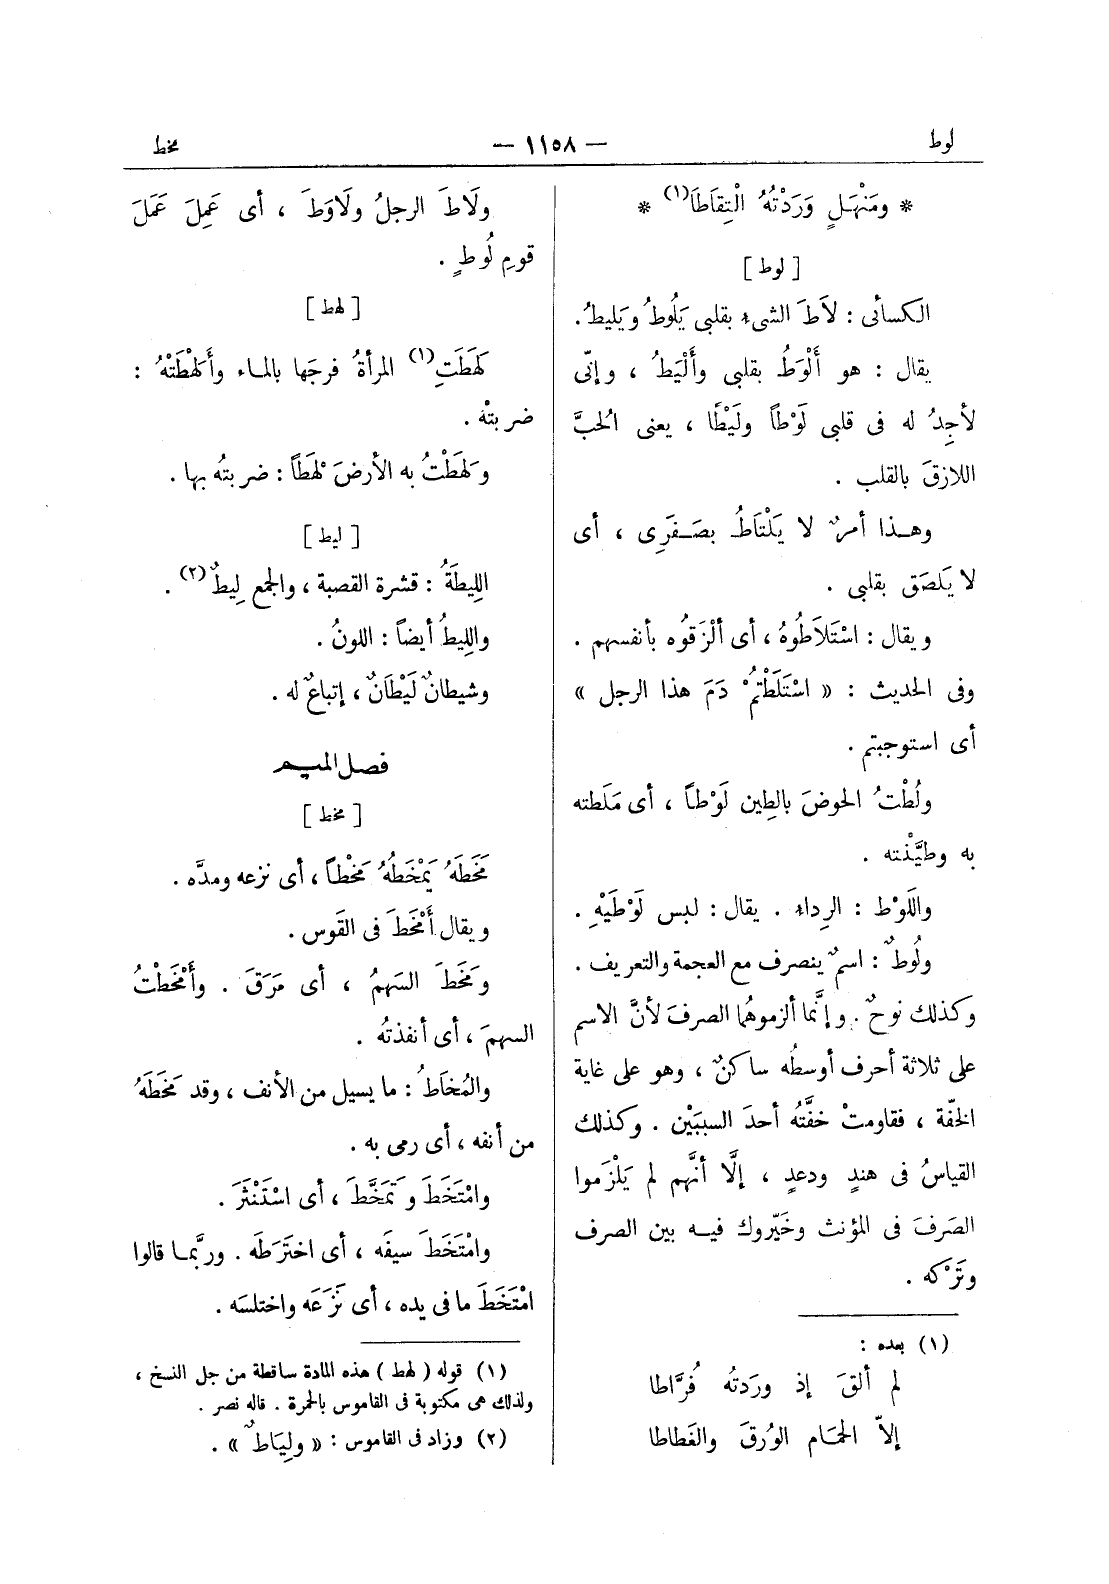 لوط
— ١١٥٨ —
مخط
* ومَنْهَلٍ وَرَدْتُهُ الْتِقَاطَا(١) *
[ لوط ]
الكسائى : لاَطَ الشىء بقلبى يَلُوطُ ويَليطُ.
يقال : هو أَلْوَطُ بقلبى وأَلْيَطُ ، وإنّى
لأجِدُ له فى قلبى لَوْطاً ولَيْطًا ، يعنى الحُبَّ
اللازقَ بالقلب .
وهذا أمرٌ لا يَلْتَاطُ بصَفَرِى ، أى
لا يَلصَق بقلبى .
ويقال : اسْتَلاَطُوهُ ، أى ألْزَقوُه بأنفسهم .
وفى الحديث : « اسْتَلَطْتُمْ دَمَ هذا الرجل »
أى استوجبتم .
ولُطْتُ الحوضَ بالطِين لَوْطاً ، أى مَلَطته
به وطيَّنْته .
واللَوْط : الرِداء . يقال : لبس لَوْطَيْهِ .
ولُوطٌ : اسمٌ ينصرف مع العجمة والتعريف .
وكذلك نوحٌ . وإنَّما ألزموهُما الصرفَ لأنَّ الاسم
على ثلاثة أحرف أوسطُه ساكنٌ ، وهو على غاية
الخفّة ، فقاومتْ خفَّتُه أحدَ السببَيْن . وكذلك
القياسُ فى هندٍ ودعدٍ ، إلَّا أنَّهم لم يَلْزَموا
الصَرفَ فى المؤنث وخَيّروك فيه بين الصرف
وتَرْكه .
(١) بعده :
لم ألقَ إذ وردتُه فُرَّاطا
إلاّ الحمَام الوُرقَ والغَطاطا
ولَاطَ الرجلُ ولَاوَطَ ، أى عَمِلَ عَمَلَ
قومِ لُوطٍ .
[ لهط ]
لَهَطَتِ(١) المرأةُ فرجَها بالماء وأَلهَطَتْهُ :
ضربتْه .
ولَهَطْتُ به الأرضَ لَهْطَاً : ضربتُه بها .
[ ليط ]
اللِيطَةُ : قشرة القصبة ، والجمع لِيطٌ(٢) .
واللِيطُ أيضاً : اللونُ .
وشيطانٌ لَيْطَانٌ ، إتباعٌ له .
فصل الميم
[ مخط ]
مَخَطَهُ يَمْخَطُهُ مَخْطاً ، أى نزعه ومدَّه .
ويقال أَمْخَطَ فى القَوس .
ومَخَطَ السَهمُ ، أى مَرَقَ . وأَمْخَطْتُ
السهمَ ، أى أنفذتُه .
والمُخَاطُ : ما يسيل من الأنف ، وقد مَخَطَهُ
من أنفه ، أى رمى به .
وامْتَخَطَ وتَمَخَّطَ ، أى اسْتَنْثَرَ .
وامْتَخَطَ سيفَه ، أى اخترَطَه . وربَّما قالوا
امْتَخَطَ ما فى يده ، أى نَزَعَه واختلسَه .
(١) قوله ( لهط ) هذه المادة ساقطة من جل النسخ ،
ولذلك هى مكتوبة فى القاموس بالحمرة . قاله نصر .
(٢) وزاد فى القاموس : « ولِيَاطٌ » .